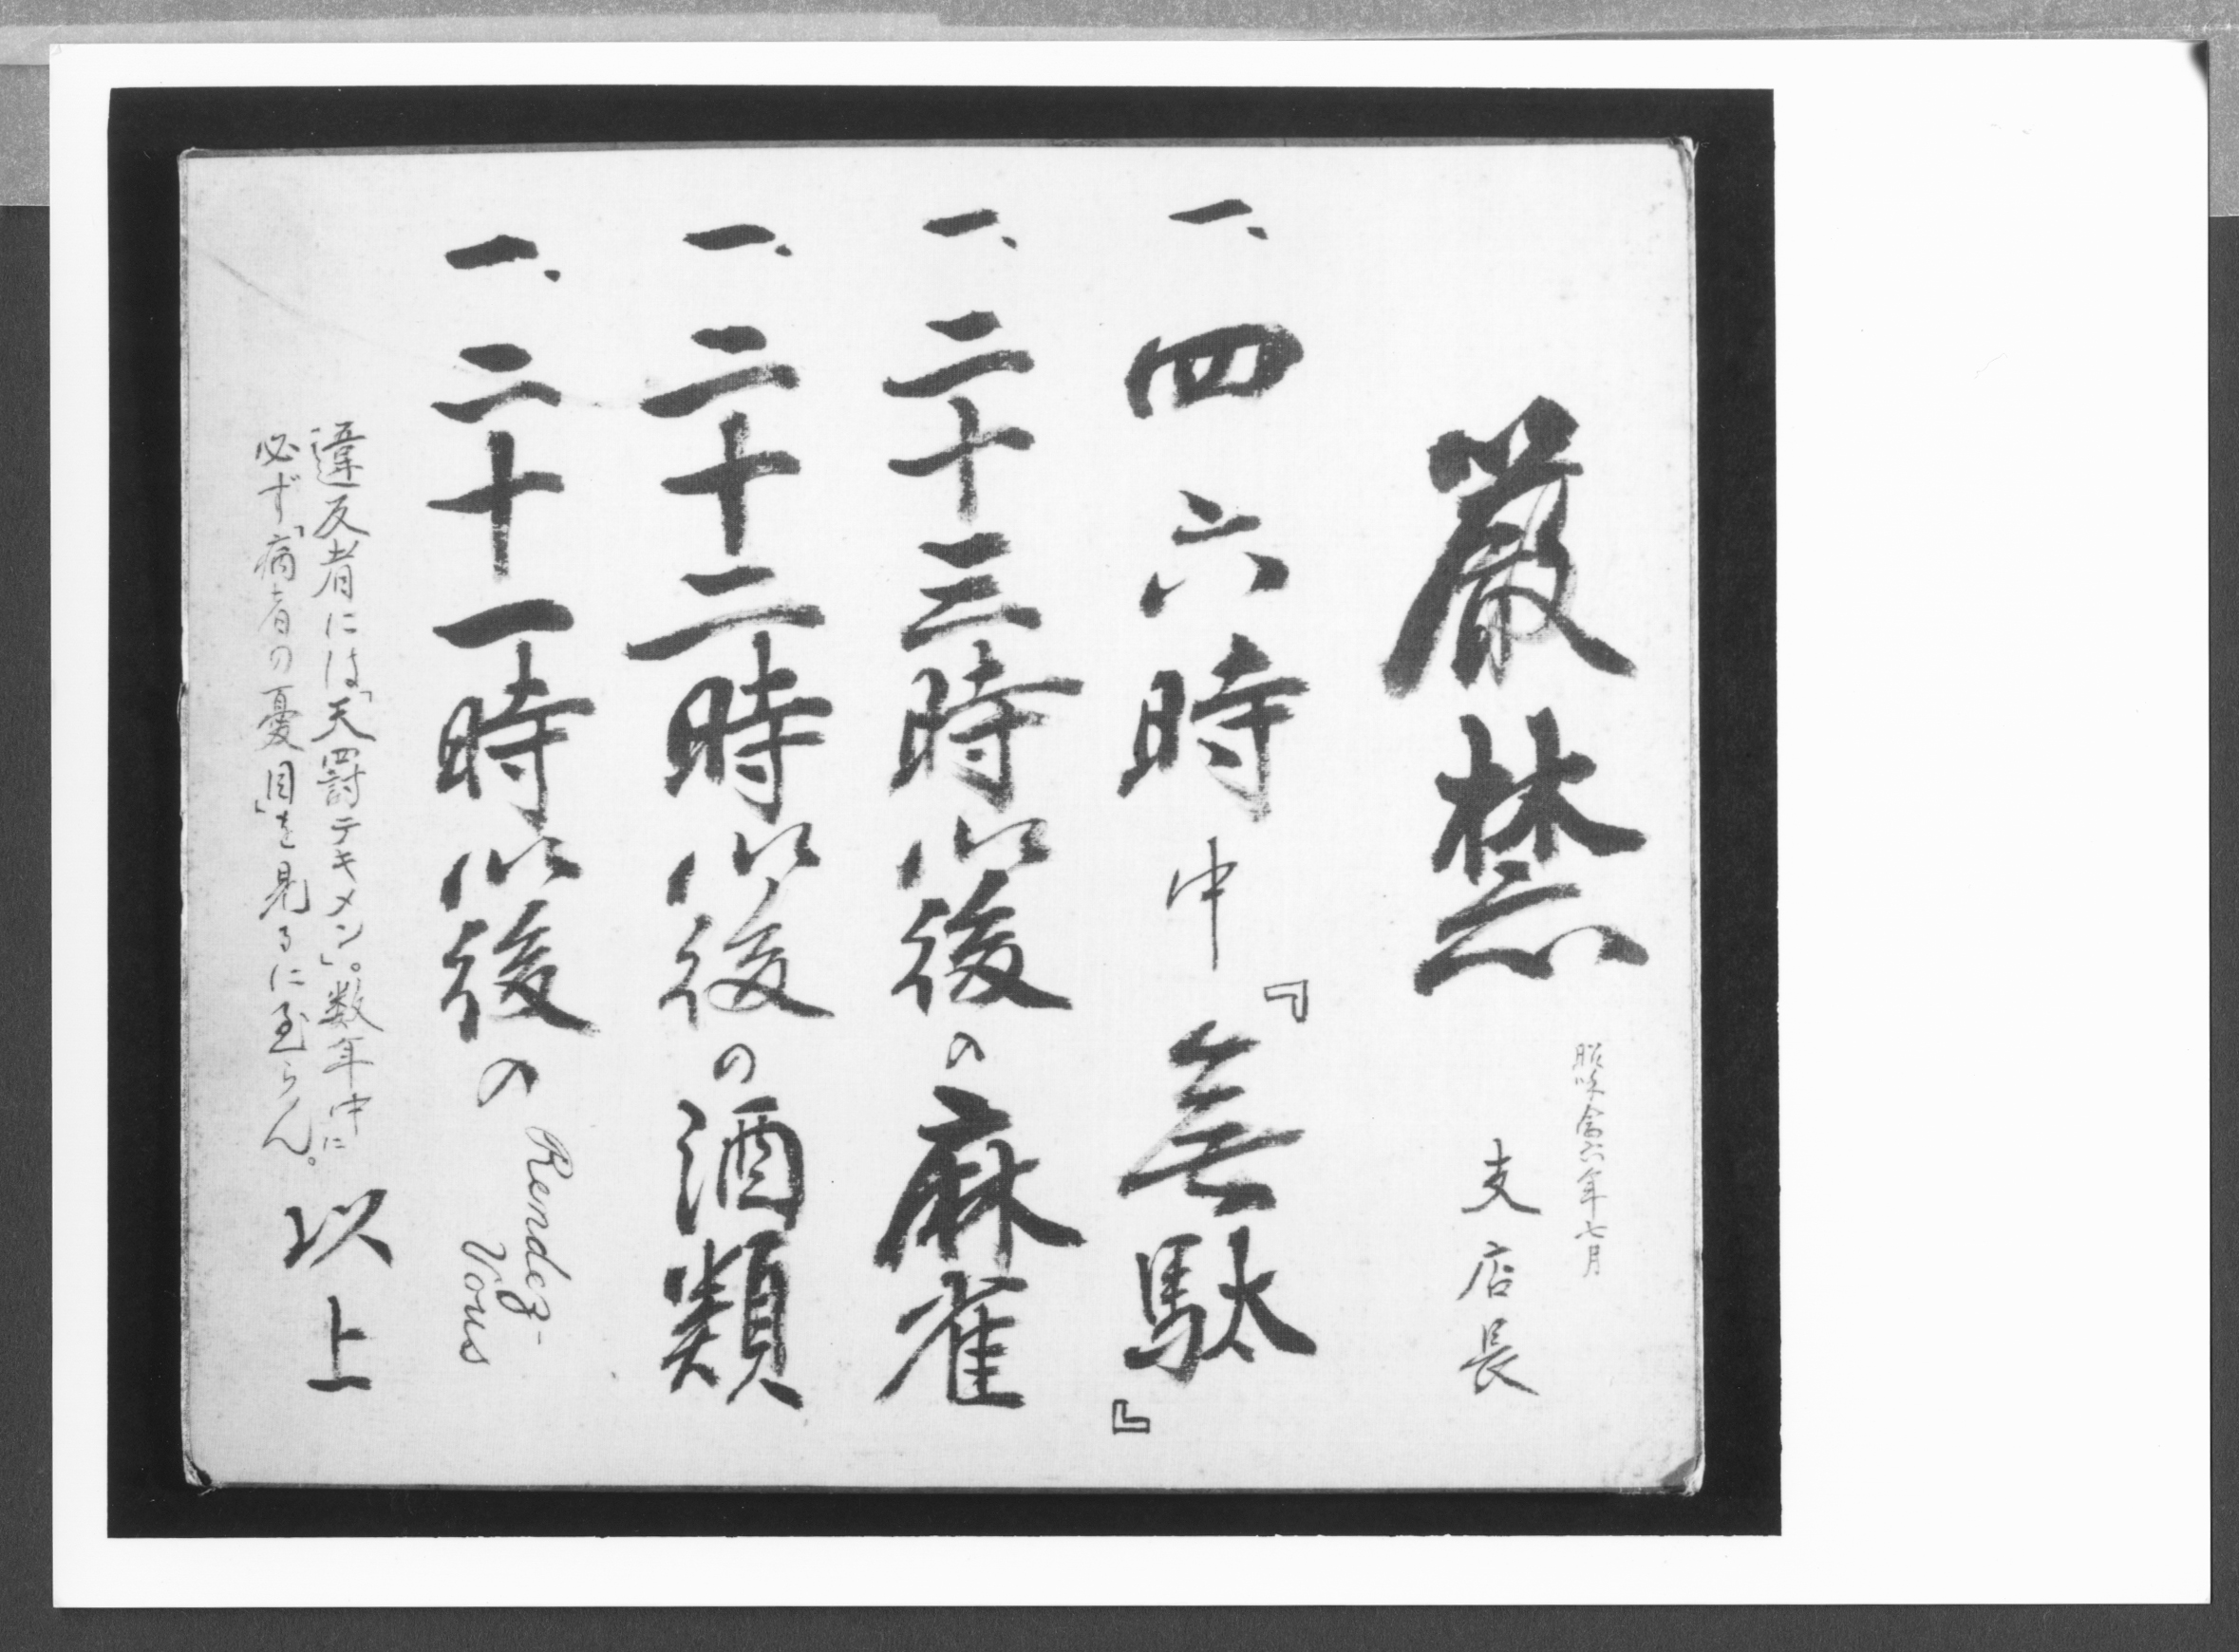 厳禁
昭和参六年七月
支店長
一、四六時中『無駄』
一、二十三時以後の麻雀
一、二十二時以後の酒類
一、二十一時以後の
Rendez-
Vous
違反者には「天罰テキメン」。数年中に
必ず「病者の憂目」を見るに至らん。
以上